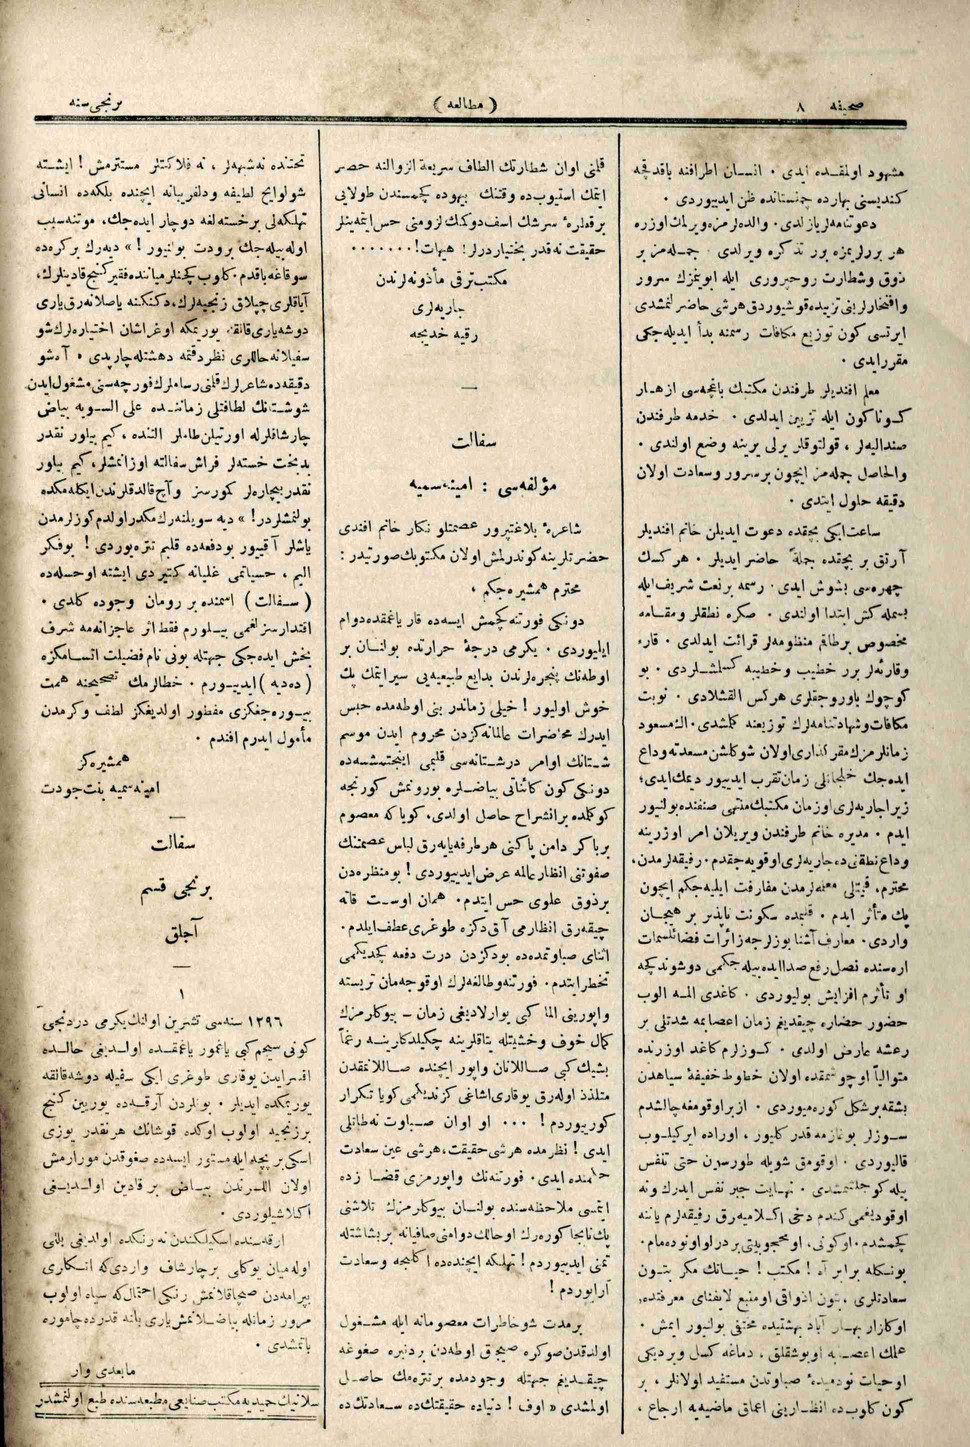 صحیفه ۸
( مطالعه )
برنجی سنه
مشهود اولمقده ایدی ۰ انسان اطرافنه باقدقچه
کندیسنی بهارده چمنستانده ظن ایدییوردی ۰
دعوتنامه‌لر یازلدی ۰ والده‌لرمزه ویرلمك اوزره
هر بررلرمزه بور تذکره ویرلدی ۰ جمله‌مز بر
ذوق و شطارت روحپروری ایله ابوینمزك سرور
و افتخارلرینی تزییده قوشیوردق هر شی حاضرلنمشدی
ایرتسی کون توزیع مکافات رسمنه بدأ ایدیله‌جکی
مقرر ایدی ۰
معلم افندیلر طرفندن مکتبك باغچه‌سی ازهار
کوناکون ایله تزیین ایدلدی ۰ خدمه طرفندن
صندالیه‌لر ، قولتوقلر یرلی یرینه وضع اولندی ۰
والحاصل جمله‌مز ایچون پر سرور و سعادت اولان
دقیقه حلول ایتدی ۰
ساعت ایکی بچقده دعوت ایدیلن خانم افندیلر
آرتق بر بچقده جملةً حاضر ایدیلر ۰ هر کسك
چهره‌سی بشوش ایدی ۰ رسمه بر نعت شریف ایله
بسمله کش ابتدا اولندی ۰ صکره نطقلر و مقامه
مخصوص بر طاقم منظومه‌لر قرائت ایدلدی ۰ قارء
و قارئه‌لر برر خطیب و خطیبه کسلمشلردی ۰ بو
کوچوك یاوروجقلری هرکس القشلادی ۰ نوبت
مکافات و شهادتنامه‌لرك توزیعنه کلمشدی ۰ اك مسعود
زمانلرمزك مقر کذاری اولان شو کلشن مسعدته وداع
ایده‌جك خلجانلی زمان تقرب ایدییور دیمك ایدی؛
زیرا جاریه‌لری اوزمان مکتبك منتهی صنفنده بولنیور
ایدم ۰ مدیره خانم طرفندن ویریلان امر اوزرینه
وداع نطقنی ده جاریه‌لری اوقویه‌جقدم ۰ رفیقه‌لرمدن،
محترم ، قیمتلی معلمه‌لرمدن مفارقت ایلیه‌جکم ایچون
پك متأثر ایدم ۰ قلبمده سکونت ناپذیر بر هیجان
واردی ۰ معارف آشنا یوزلرجه زائرات فضائلسمات
اره‌سنده نصل رفع صدا ایده بیله‌جکمی دوشوندکچه
او تأثرم افزایش بولیوردی ۰ کاغدی المه الوب
حضور حضاره چیقدیغم زمان اعصابمه شدتلی بر
رعشه عارض اولدی ۰ کوزلرم کاغد اوزرنده
متوالیاً اوچوشمقده اولان خطوط خفیفهٔ سیاهدن
بشقه بر شکل کوره‌میوردی ۰ ازبر اوقومغه چالشدم
سوزلر بوغازمه قدر کلیور ، اوراده ایرکیلوب
قالیوردی ۰ اوقومق شویله طورسین حتی تنفس
بیله کوجلشمشدی ۰ نهایت جبر نفس ایدرك ونه
اوقودیغمی کندم دخی اکلامیه‌رق رفیقه‌لرم یاننه
کچمشدم ۰ او کونی ، او محجوبیتی بر درلو اونوده‌مام ۰
بونکله برابر آه ! مکتب ! حیاتك مکر بتون
سعادتلری ، بتون اذواقی او منبع لایفنای معرفتده ،
او کلزار بهار آباد بهشتیده مختفی بولنیور ایمش ۰
عملك اعصابه اویوشقلق ، دماغه کسل ویردیکی
او حیات نودمیدهٔ صباوتدن مستفید اولانلر ، بر
کون کلوب ده انظارینی اعماق ماضیه‌یه ارجاع ،
قلمنی اوان شطارتك الطاف سریعة الزوالنه حصر
ایتمك استیوب ده وقتنك بیهوده کچمسندن طولایی
بر قطرهٔ سرشك اسف دوکمك لزومنی حس ایتمه‌ینلر
حقیقت نه قدر بختیاردرلر! هیهات!۰۰۰۰۰۰۰
مکتب ترقی مأذونه‌لرندن
جاریه‌لری
رقیه خدیجه
سفالت
مؤلفه‌سی : امینه سمیه
شاعرهٔ بلاغتپرور عصمتلو نکار خانم افندی
حضرتلرینه کوندرلمش اولان مکتوبك صورتیدر :
محترم همشیره‌جکم ،
دونکی فورتنه کچمش ایسه‌ده قار یاغمقده دوام
ایلیوردی ۰ یکرمی درجهٔ حرارتده بولنسان بر
اوطه‌نك پنجره‌لرندن بدایع طبیعیه‌یی سیر ایتمك پك
خوش اولیور ! خیلی زماندر بنی اوطه‌مده حبس
ایدرك محاضرات عالمانه‌کزدن محروم ایدن موسم
شتانك اوامر درشتانه‌سی قلبمی اینجتمشسه‌ده
دونکی کون کائناتی بیاضلره بورونمش کورنجه
کوکلمده بر انشراح حاصل اولدی، کویا که معصوم
بر باکر دامن پاکنی هر طرفه یایه‌رق لباس عصمتنك
صفوتنی انظار عالمه عرض ایدییوردی ! بو منظره‌دن
بر ذوق علوی حس ایتدم ۰ همان اوست قاته
چیقه‌رق انظارمی آق دکزه طوغری عطف ایلدم ۰
اثنای صباوتمده‌ده بو دکزدن درت دفعه کچدیکمی
تخطر ایتدم ۰ فورتنه و طالغه‌لرك اوقوجه‌مان تریسته
واپورینی الما کبی یوارلادیغی زمان – بیوکلرمزك
کمال خوف و خشیتله یتاقلرینه چکیلدکلرینه رغماً
بشیك کبی صاللانان واپور ایچنده صاللانمقدن
متلذذ اوله‌رق یوقاری اشاغی کزندیکمی کویا تکرار
کورییوردم ! ۰۰۰ او اوان صباوت نه طاتلی
ایدی ! نظرمده هر شی حقیقت، هر شی عین سعادت
ایدی ۰ فورتنه‌نك واپورمزی قضا زده
ایتمسی ملاحظه‌سنده بولنسان بیوکلرمزك تلاشنی
پك نابجا کوره‌رك او حالك دوامنی صافیانه بر بشاشتله
تمنی ایدییوردم ! تهلکه ایچنده‌ده اکلنجه و سعادت
آرایوردم !
بر مدت شو خاطرات معصومانه ایله مشغول
اولدقدن صوکره صیجق اوطه‌دن بردنبره صغوغه
چیقدیغم جهتله وجودمده بر تتره‌مك حاصل
اولمشدی « اوف ! دنیاده حقیقتك‌ده سعادتك‌ده
تحتنده نه شبهه‌لر ، نه فلاکتلر مستترمش ! ایشته
شو لوایح لطیفه و دلفریبانه ایچنده بلکه‌ده انسانی
تهلکه‌لی بر خسته‌لغه دوچار ایده‌جك، موتنه سبب
اوله‌بیله‌جك برودت بولنیور ! » دیه‌رك بر کره‌ده
سوقاغه باقدم ۰ کلوب کچنلر میاننده فقیر کنج قادینلرك،
آیاقلری چپلاق زنجیه‌لرك، دکنکنه یاصلانه‌رق یاری
دوشه یاری قالقه یوریمکه اوغراشان اختیاره‌لرك شو
سفیلانه حاللری نظر دقتمه دهشتله چارپدی ، آه شو
دقیقه‌ده شاعرلرك قلمنی رساملرك فورچه‌سنی مشغول ایدن
شو شتانك لطافتلی زماننده علی السویه بیاض
چارشافلرله اورتیلن طاملر التنده ، کیم بیلور نقدر
بدبخت خسته‌لر فراش سفالته اوزانمشلر، کیم بیلور
نقدر بیچاره‌لر کومورسز و آج قالدقلرندن ایکله‌مکده
بولنمشلردر! » دیه سویلنه‌رك مکدر اولدم کوزلرمدن
یاشلر آقییور بو دفعه‌ده قلبم تتره‌یوردی ! بو فکر
الیم ، حسیاتمی غلیانه کتیردی ایشته او حسله‌ده
( سفالت ) اسمنده بر رومان وجوده کلدی ۰
اقتدارسزلغمی بیلورم فقط اثر عاجزانه‌مه شرف
بخش ایده‌جکی جهتله بونی نام فضیلت اتسامکزه
( ده‌دیه ) ایدییورم ۰ خطالرمك تصحیحنه همت
بیوره‌جغکزی مفطور اولدیغکز لطف و کرمدن
مأمول ایدرم افندم ۰
همشیره‌کز
امینه سمیه بنت جودت
سفالت
برنجی قسم
آجلق
۱
۱۲۹۶ سنه‌سی تشرین اولنك یکرمی دردنجی
کونی سیجم کبی یاغمور یاغمقده اولدیغی حالده
اقسرایدن یوقاری طوغری ایکی سفیله دوشه قالقه
یوریمکده ایدیلر ۰ بونلردن آرقه‌ده یوریین کنج
بر زنجیه اولوب اوکده قوشانك هر نقدر یوزی
اسکی بر پچه ایله مستور ایسه‌ده صغوقدن مورارمش
اولان اللرندن بیاض بر قادین اولدیغی
اکلاشیلوردی ۰
ارقه‌سنده اسکیلکندن نه رنکده اولدیغی بللی
اوله‌میان یوکلی بر چارشاف واردی که اتکلری
ییرامه‌دن صچاقلانمش رنکی احتمال که سیاه اولوب
مرور زمانله بیاضلانمش یاری یانه قدرده چاموره
باتمشدی ۰
مابعدی وار
سلانیك حمیدیه مکتب صنایعی مطبعه‌سنده طبع اولنمشدر